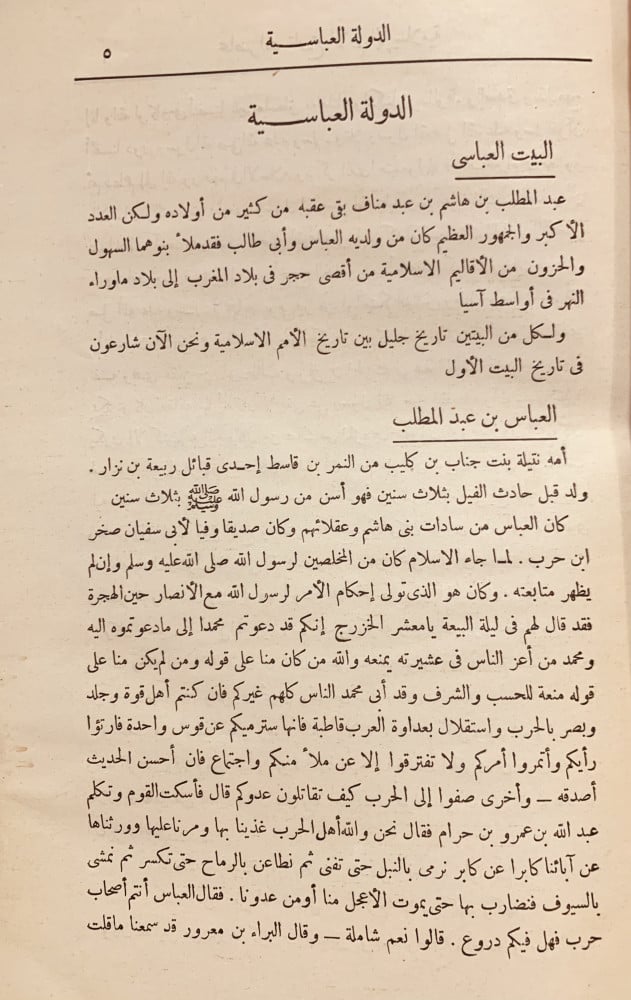 الدولة العباسية
٥
الدولة العباسية
البيت العباسى
عبد المطلب بن هاشم بن عبد مناف بقى عقبه من كثير من أولاده ولكن العدد
الأكبر والجمهور العظيم كان من ولديه العباس وأبى طالب فقد ملأ بنوهما السهول
والحزون من الأقاليم الاسلامية من أقصى حجر فى بلاد المغرب إلى بلاد ماوراء
النهر فى أواسط آسيا
ولكل من البيتين تاريخ جليل بين تاريخ الأمم الاسلامية ونحن الآن شارعون
فى تاريخ البيت الأول
العباس بن عبد المطلب
أمه نتيلة بنت جناب بن كليب من النمر بن قاسط إحدى قبائل ربيعة بن نزار .
ولد قبل حادث الفيل بثلاث سنين فهو أسن من رسول الله ﷺ بثلاث سنين
كان العباس من سادات بنى هاشم وعقلائهم وكان صديقا وفيا لأبى سفيان صخر
ابن حرب . لما جاء الاسلام كان من المخلصين لرسول الله صلى الله عليه وسلم وإن لم
يظهر متابعته . وكان هو الذى تولى إحكام الأمر لرسول الله مع الأنصار حين الهجرة
فقد قال لهم فى ليلة البيعة يامعشر الخزرج إنكم قد دعوتم محمدا إلى مادعوتموه اليه
ومحمد من أعز الناس فى عشيرته يمنعه والله من كان منا على قوله ومن لم يكن منا على
قوله منعة للحسب والشرف وقد أبى محمد الناس كلهم غيركم فان كنتم أهل قوة وجلد
وبصر بالحرب واستقلال بعداوة العرب قاطبة فانها سترميكم عن قوس واحدة فارتؤا
رأيكم وأتمروا أمركم ولا تفترقوا إلا عن ملأ منكم واجتماع فان أحسن الحديث
أصدقه — وأخرى صفوا إلى الحرب كيف تقاتلون عدوكم قال فأسكت القوم وتكلم
عبد الله بن عمرو بن حرام فقال نحن والله أهل الحرب غذينا بها ومرنا عليها وورثناها
عن آبائنا كابرا عن كابر نرمى بالنبل حتى تفنى ثم نطاعن بالرماح حتى تكسر ثم نمشى
بالسيوف فنضارب بها حتى يموت الأعجل منا أو من عدونا . فقال العباس أنتم أصحاب
حرب فهل فيكم دروع . قالوا نعم شاملة — وقال البراء بن معرور قد سمعنا ماقلت